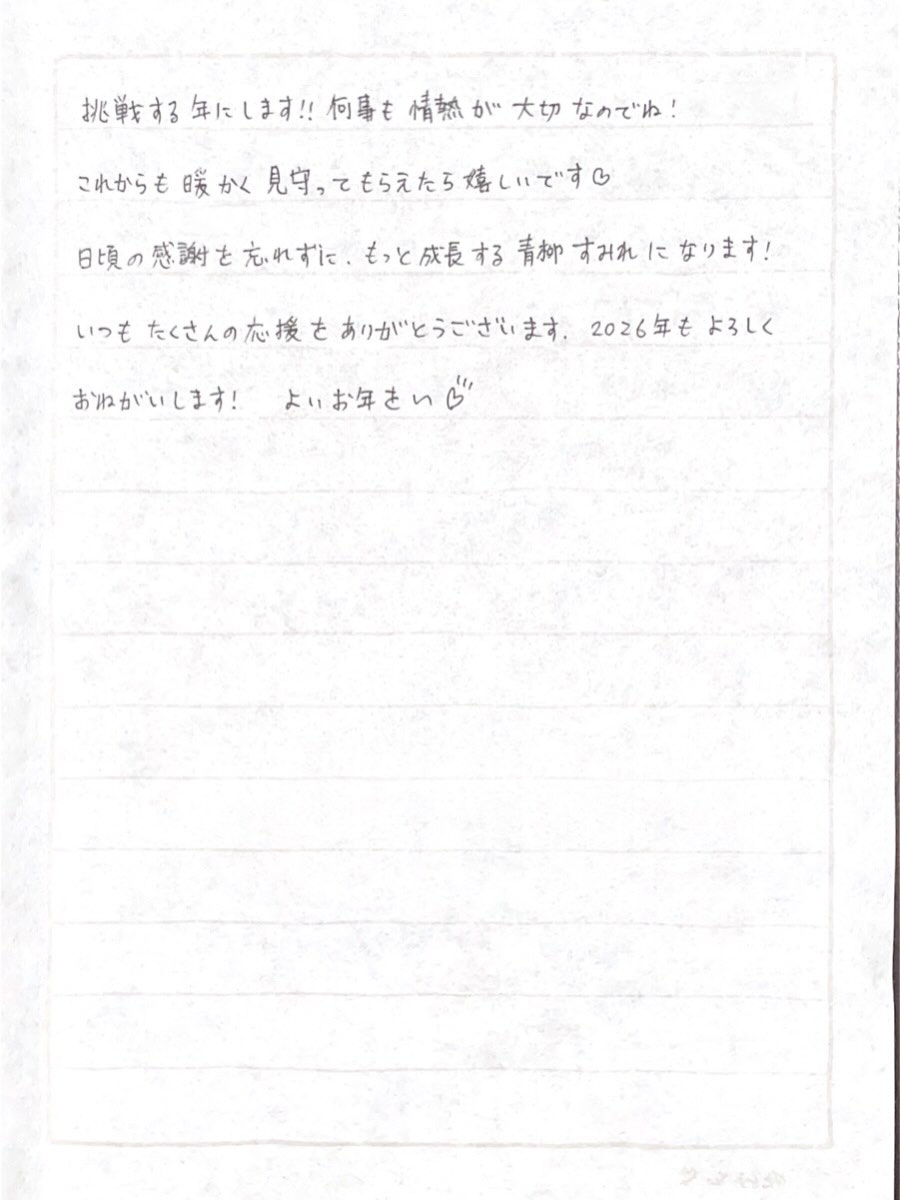 挑戦する年にします!! 何事も情熱が大切なのでね!
これからも暖かく見守ってもらえたら嬉しいです♡
日頃の感謝を忘れずに、もっと成長する青柳すみれになります!
いつもたくさんの応援をありがとうございます。2026年もよろしく
おねがいします! よいお年をい♡